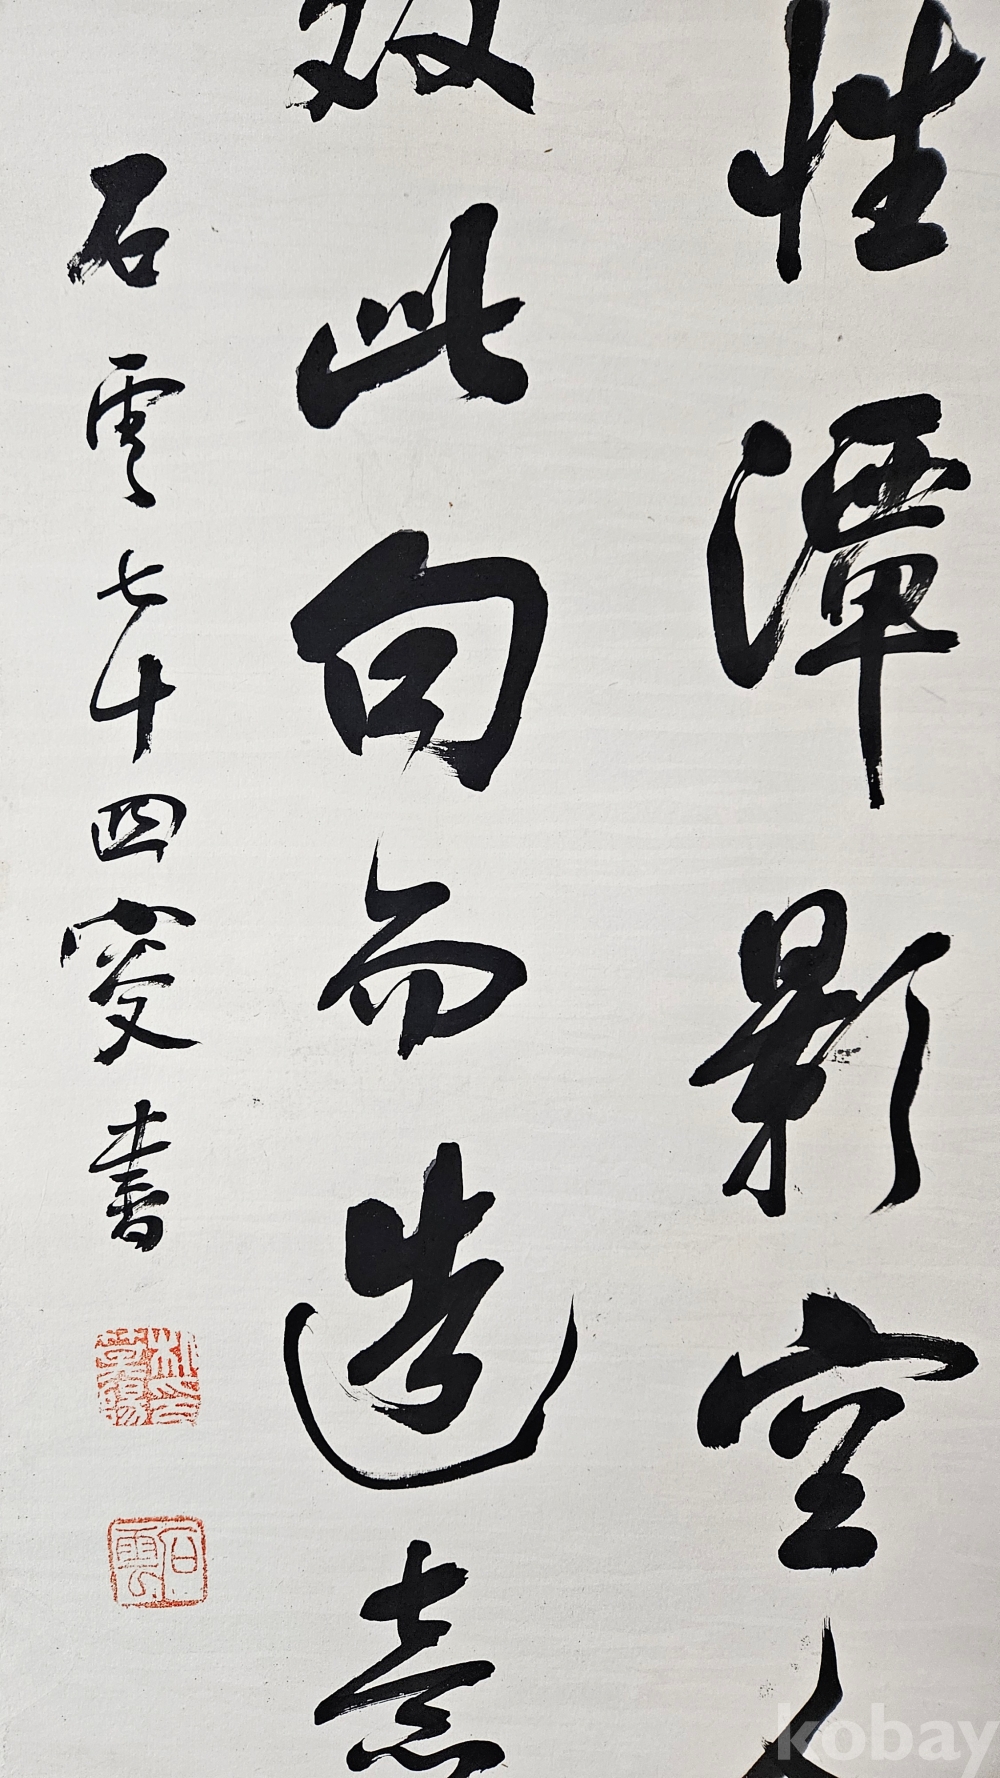 性潭影空人
效此句而造意
石雲七十四叟書
石雲
kobay